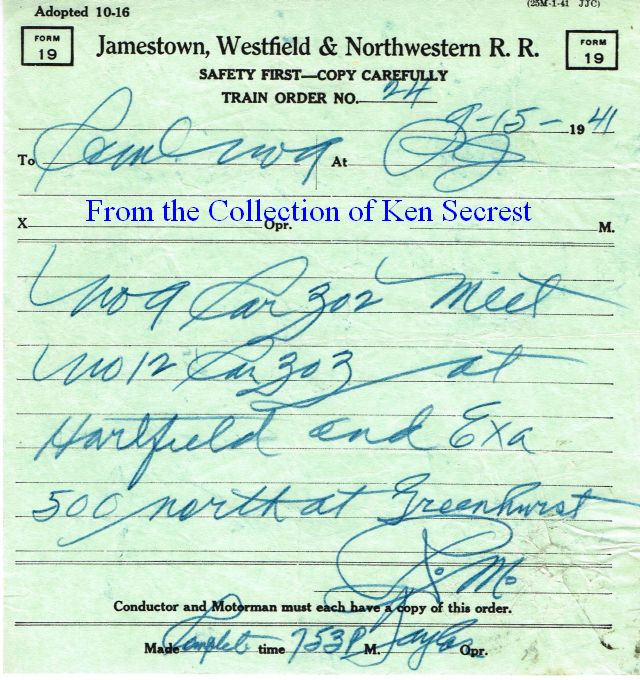 Adopted 10-16
(25M-1-41 JJC)
FORM 19
Jamestown, Westfield & Northwestern R. R.
FORM 19
SAFETY FIRST—COPY CAREFULLY
TRAIN ORDER NO. 24
8-15- 1941
To C and M No 9 At
From the Collection of Ken Secrest
X Opr. M.
No 9 Car 302 meet
No 12 Car 303 at
Hartfield and Exa
500 north at Greenhurst
Conductor and Motorman must each have a copy of this order.
Made Complete time 753P M. Opr.